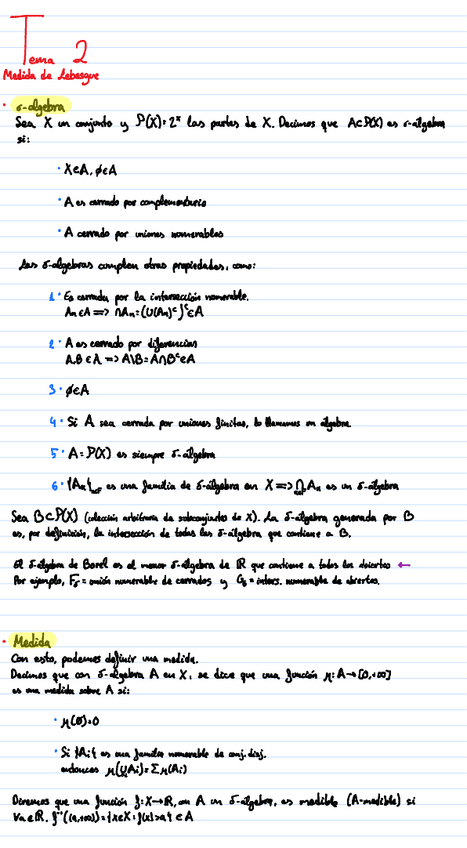 Tema 2
Medida de Lebesgue
· σ-álgebra
Sea X un conjunto y P(X)=2ˣ las partes de X. Decimos que A⊂P(X) es σ-álgebra
si:
· X∈A, ∅∈A
· A es cerrado por complementario
· A cerrado por uniones numerables
Las σ-álgebras cumplen otras propiedades, como:
1· Es cerrada por la intersección numerable.
Aₙ∈A => ∩Aₙ=(∪(Aₙ)ᶜ)ᶜ∈A
2· A es cerrado por diferencias
A,B∈A => A\B=A∩Bᶜ∈A
3· ∅∈A
4· Si A sea cerrada por uniones finitas, lo llamamos un álgebra.
5· A=P(X) es siempre σ-álgebra
6· {Aₙ} es una familia de σ-álgebra en X => ∩Aₙ es un σ-álgebra
Sea B⊂P(X) (colección arbitraria de subconjuntos de X). La σ-álgebra generada por B
es, por definición, la intersección de todas las σ-álgebra que contiene a B.
El σ-álgebra de Borel es el menor σ-álgebra de ℝ que contiene a todos los abiertos ←
Por ejemplo, Fσ = unión numerable de cerrados y Gδ = inters. numerable de abiertos.
· Medida
Con esto, podemos definir una medida.
Decimos que con σ-álgebra A en X, se dice que una función μ: A→[0,+∞]
es una medida sobre A si:
· μ(∅)=0
· Si {Aᵢ} es una familia numerable de conj. disj.
entonces μ(∪Aᵢ)=Σμ(Aᵢ)
Diremos que una función f:X→ℝ, en A un σ-álgebra, es medible (A-medible) si
∀a∈ℝ. f⁻¹((a,+∞))={x∈X: f(x)>a}∈A